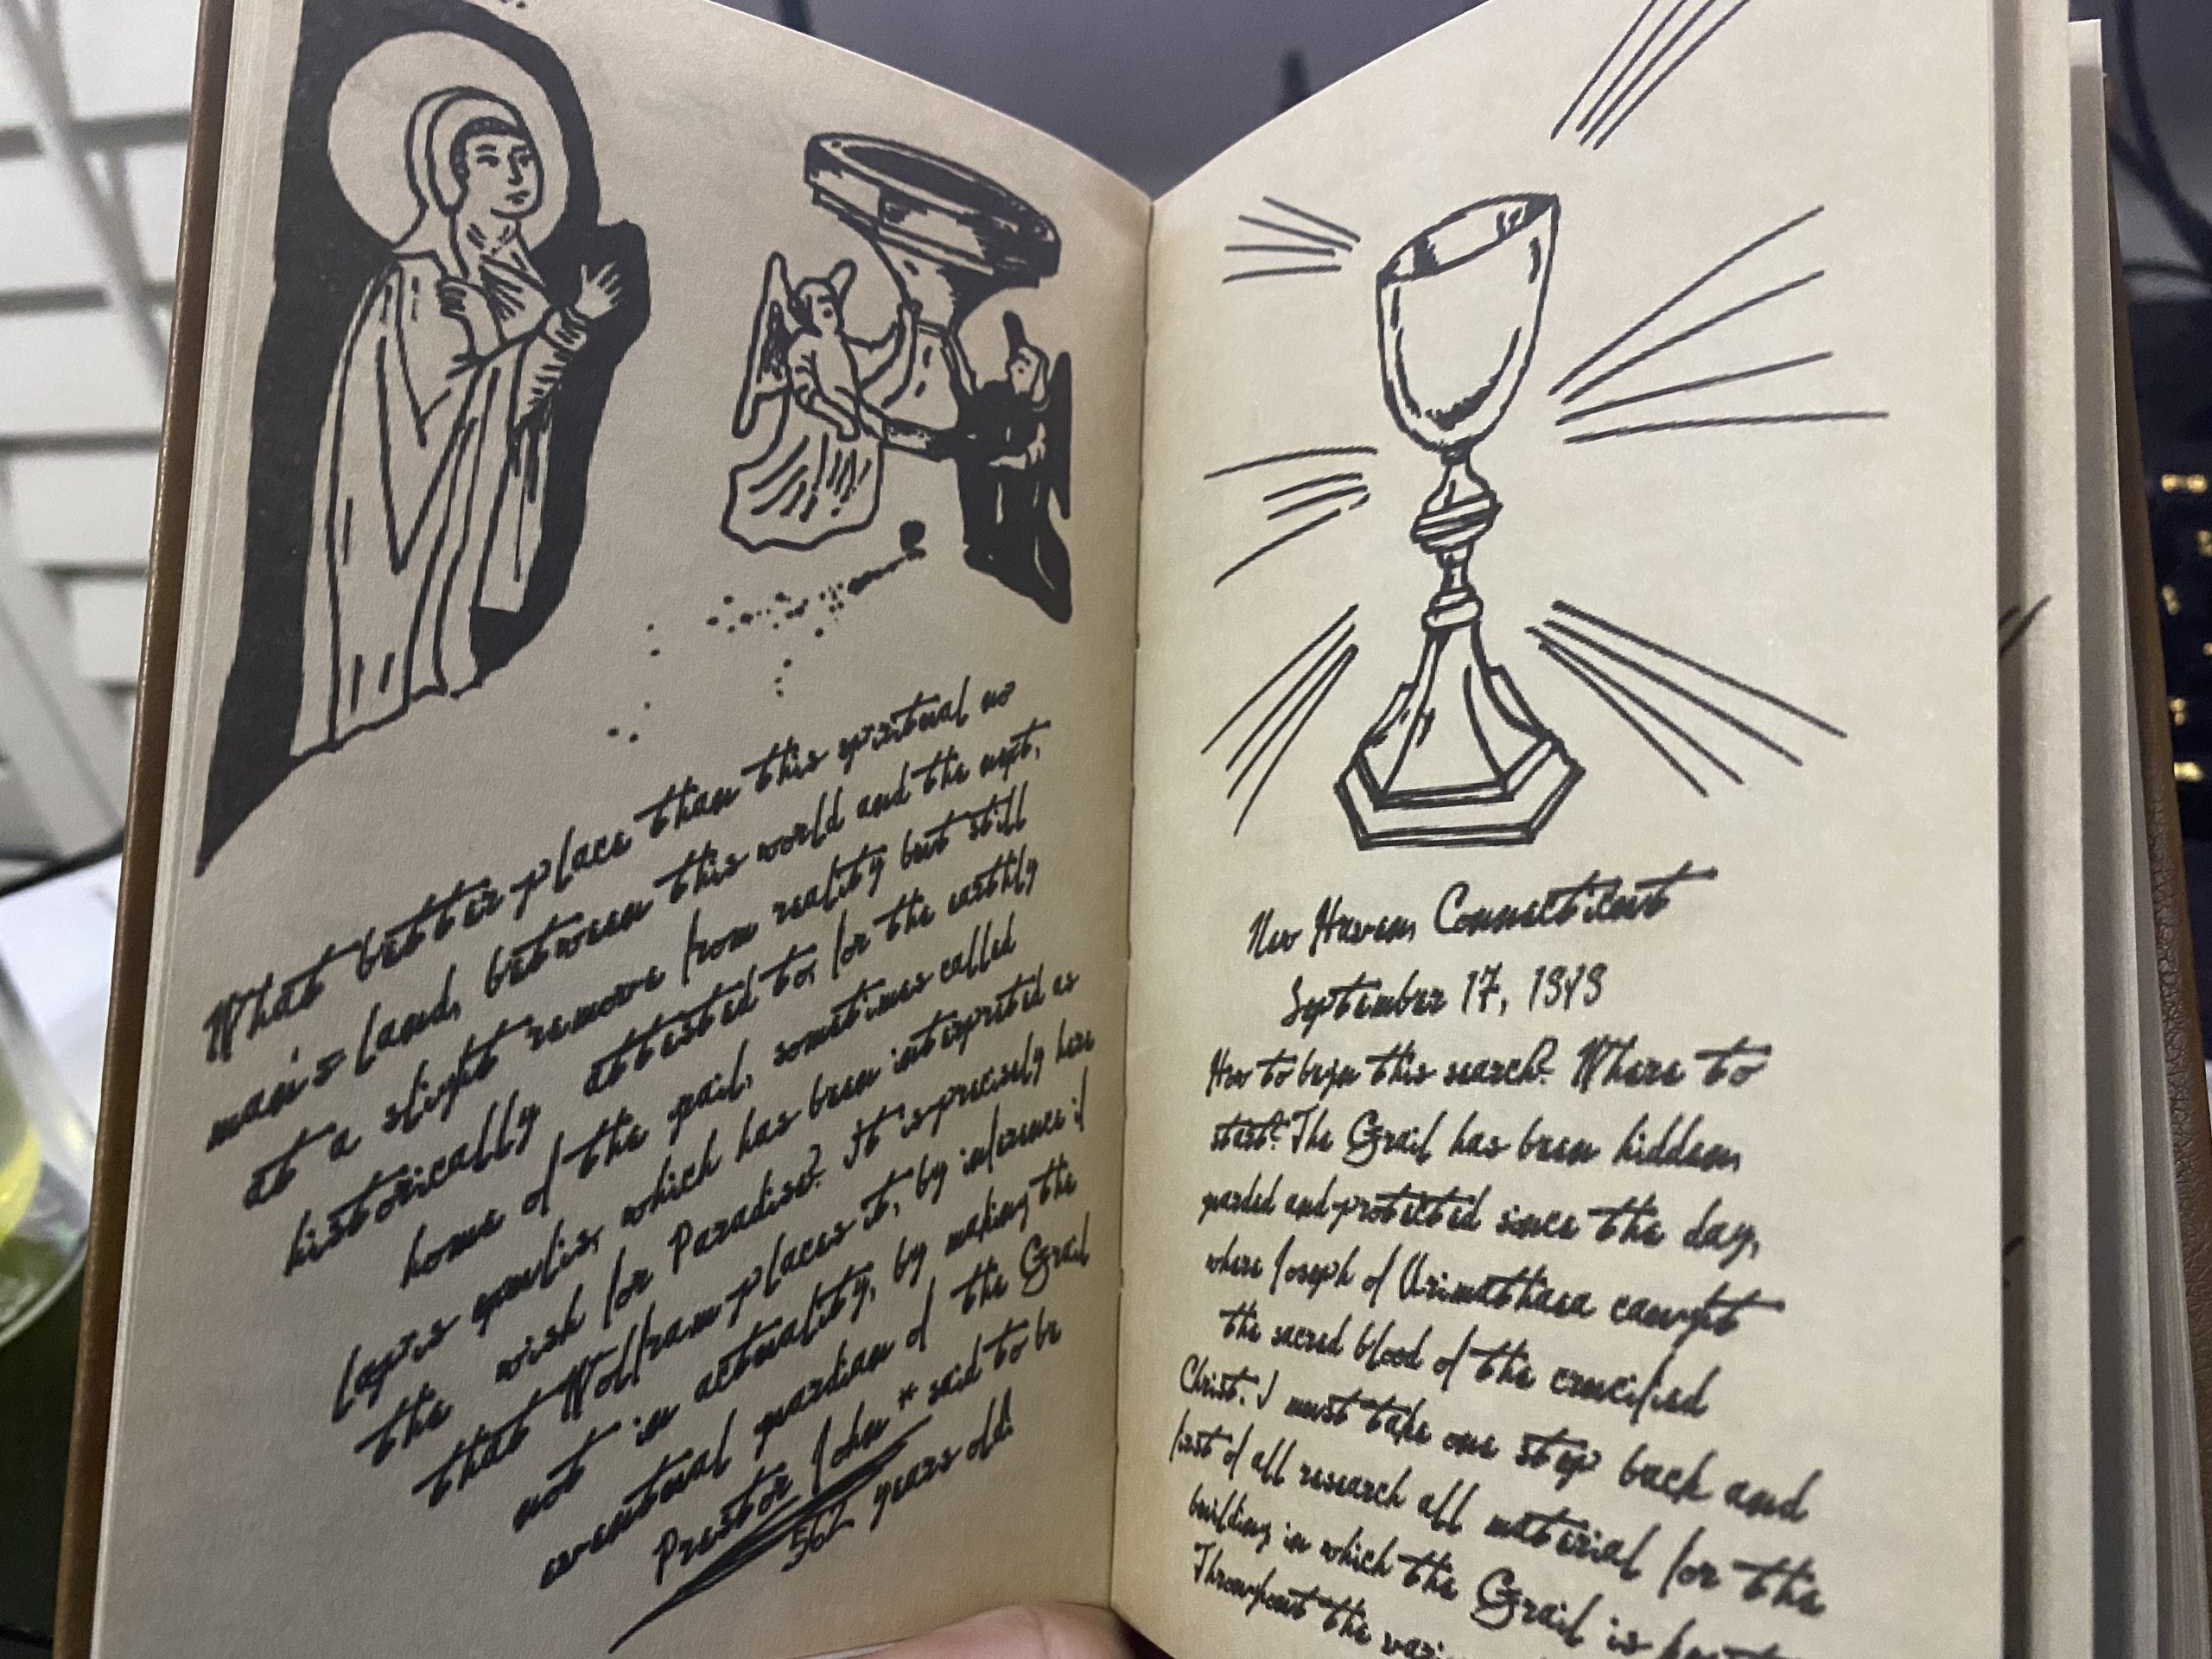 What better place than this spiritual no
man's land, between this world and the next,
at a slight remove from reality but still
historically attested to, for the earthly
home of the grail, sometimes called
lapis exilis, which has been interpreted as
the wish for Paradise? It is precisely here
that Wolfram places it, by inference if
not in actuality, by making the
eventual guardian of the Grail
Prestor John * said to be
562 years old!
New Haven, Connecticut
September 17, 1919
How to begin this search? Where to
start? The Grail has been hidden,
guarded and protected since the day,
where Joseph of Arimathaea caught
the sacred blood of the crucified
Christ. I must take one step back and
first of all research all material for the
building in which the Grail is kept
Throughout the